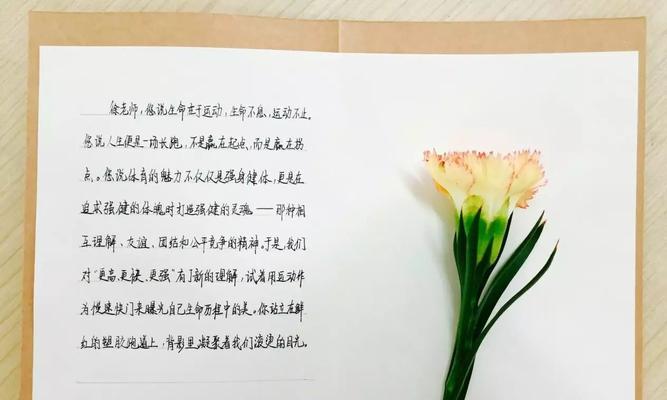 徐老师，您说生命在于运动，生命不息，运动不止。
您说人生便是一场长跑，不是赢在起点，而是赢在拐
点。您说体育的魅力不仅仅是强身健体，更是在
追求强健的体魄时打造强健的灵魂——那种相
互理解、友谊、团结和公平竞争的精神。于是，我们
对“更高、更快、更强”有了新的理解，试着用运动作
为慢速快门来曝光自己生命历程中的美。你站立在鲜
红的塑胶跑道上，背影里凝聚着我们滚烫的目光。